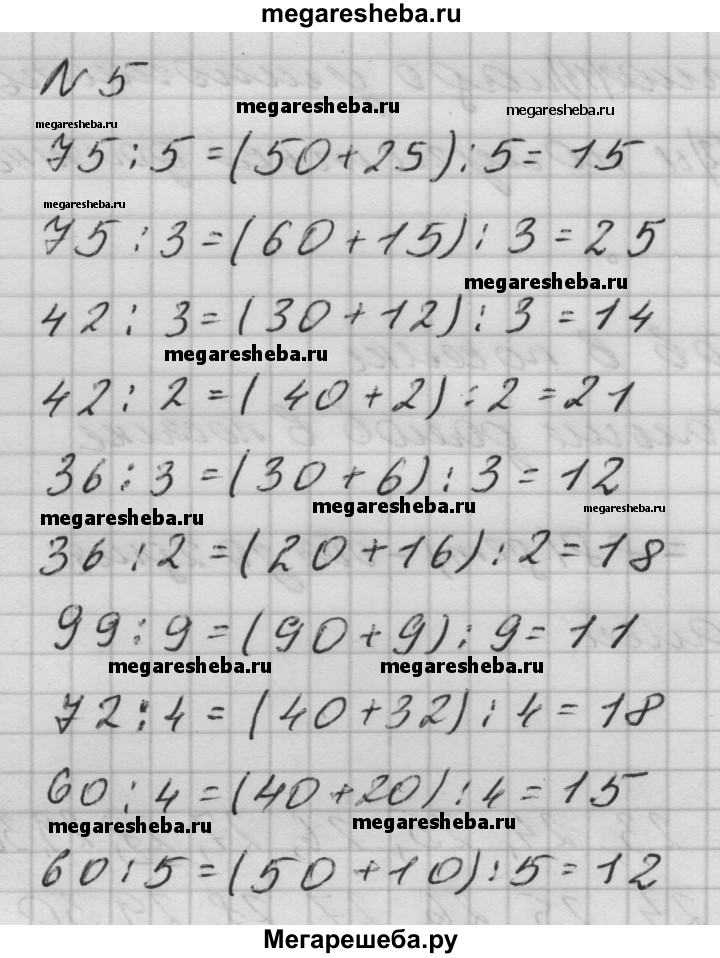 megaresheba.ru
N 5
megaresheba.ru megaresheba.ru
megaresheba.ru
75 : 5 = (50 + 25) : 5 = 15
megaresheba.ru
75 : 3 = (60 + 15) : 3 = 25
megaresheba.ru
42 : 3 = (30 + 12) : 3 = 14
megaresheba.ru
42 : 2 = (40 + 2) : 2 = 21
36 : 3 = (30 + 6) : 3 = 12
megaresheba.ru megaresheba.ru megaresheba.ru
36 : 2 = (20 + 16) : 2 = 18
99 : 9 = (90 + 9) : 9 = 11
megaresheba.ru megaresheba.ru
72 : 4 = (40 + 32) : 4 = 18
60 : 4 = (40 + 20) : 4 = 15
megaresheba.ru megaresheba.ru
60 : 5 = (50 + 10) : 5 = 12
Мегарешеба.ру